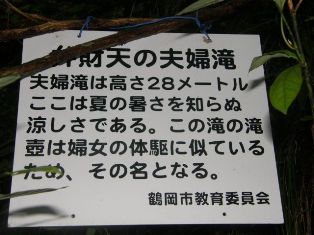 弁財天の夫婦滝
夫婦滝は高さ28メートル
ここは夏の暑さを知らぬ
涼しさである。この滝の滝
壺は婦女の体駆に似ている
ため、その名となる。
鶴岡市教育委員会